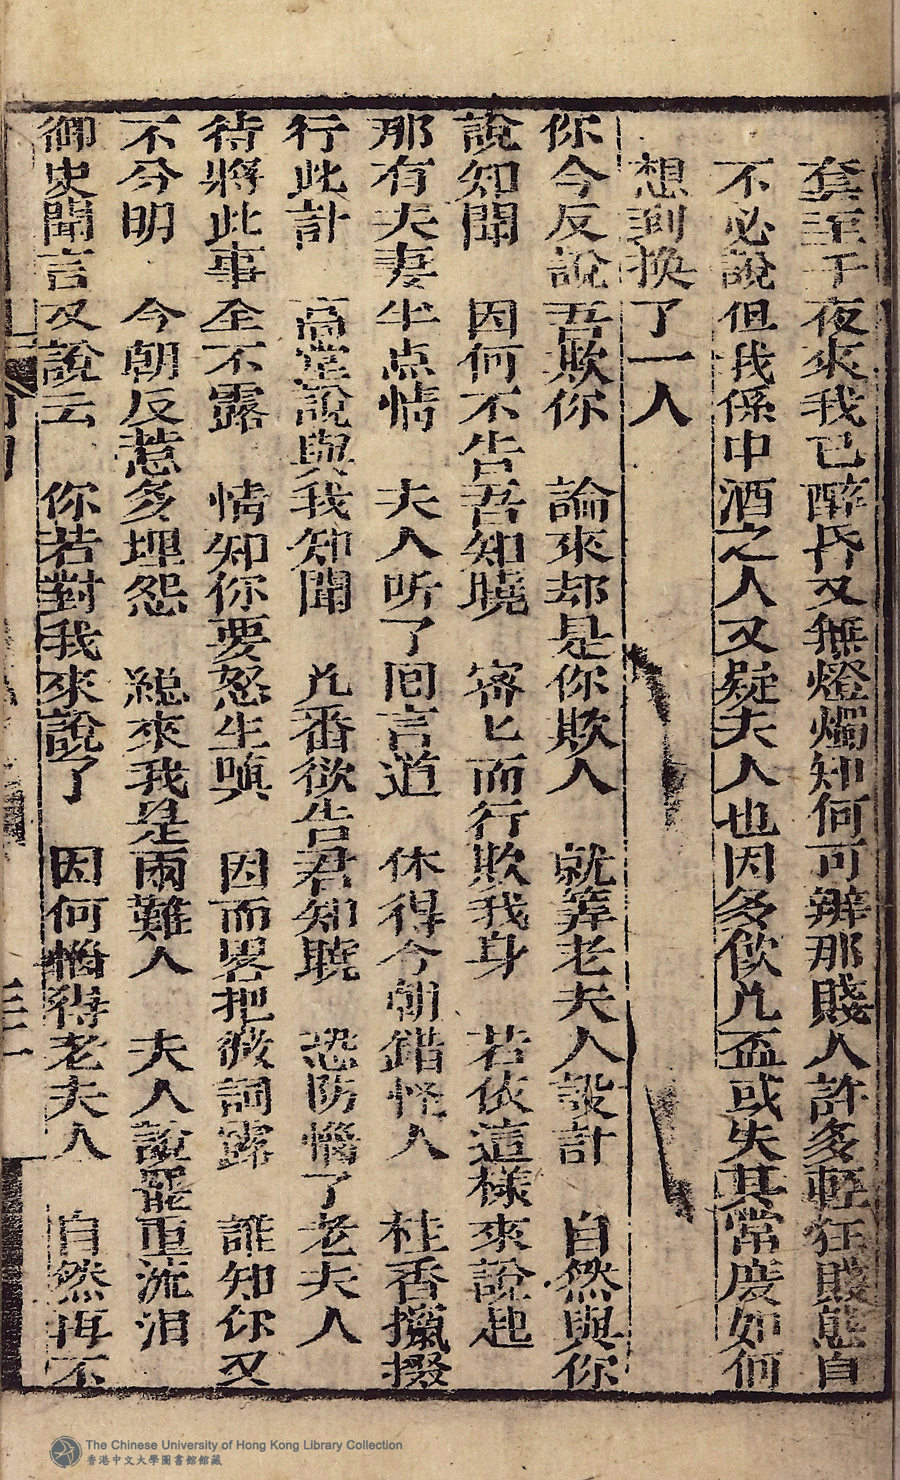 套至于夜來我已醉昏又無燈燭知何可辨那賤人許多輕狂賤態自
不必說但我係中酒之人又疑夫人也因多飲几盃或失其常度如何
想到換了一人
你今反說吾欺你　論來却是你欺人　就筭老夫人設計　自然與你
說知聞　因何不告吾知曉　審匕而行欺我身　若依這樣來說起
那有夫妻半点情　夫人听了囘言道　休得今朝錯怪人　桂香攛掇
行此計　高堂說與我知聞　几番欲告君知曉　恐防惱了老夫人
待將此事全不露　情知你要怒生嗔　因而畧把微詞露　誰知你又
不分明　今朝反惹多埋怨　総來我是兩難人　夫人說罷重流淚
御史聞言又說云　你若對我來說了　因何惱得老夫人　自然再不
The Chinese University of Hong Kong Library Collection
香港中文大學圖書館館藏